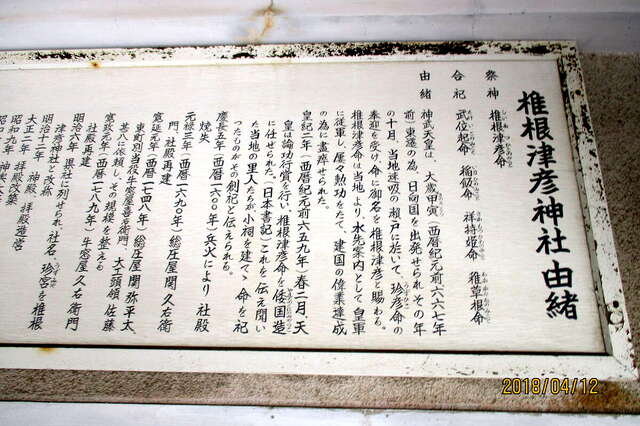 椎根津彦神社由緒
祭神 椎根津彦命
合祀 武位起命 稲飯命 祥持姫命 稚草根命
由緒 神武天皇は、大歳甲寅(西暦紀元前六六七年
前)東遷の為、日向国を出発せられその年
の十月、当地速吸の瀬戸に於いて、珍彦命の
奉迎を受け、命に御名を椎根津彦と賜わる。
椎根津彦命は当地より、水先案内として皇軍
に従軍し、屡々勲功をたて、建国の偉業達成
の為に盡瘁せられた。
皇紀二年(西暦紀元前六五九年)春二月、天
皇は論功行賞を行い、椎根津彦命を倭国造
に任せられた。(日本書記)これを伝え聞い
た当地の里人たちが小祠を建て、命を祀
ったものがその創祀と伝えられる。
慶長五年(西暦一六〇〇年)兵火により社殿
焼失
元禄三年(西暦一六九〇年)総庄屋関久右衛
門、社殿再建
寛延元年(西暦一七四八年)総庄屋関弥平太、
東町別当役牛窓屋喜左衛門、大工頭領佐藤
甚八に依頼し、その規模を整える
寛政元年(西暦一七八九年)牛窓屋久右衛門
社殿再建
明治六年 県社に列せられ社名 珍宮を椎根
津彦神社と改称
明治十二年 神殿、拝殿造営
大正二年 拝殿改築
昭和
2018/04/12